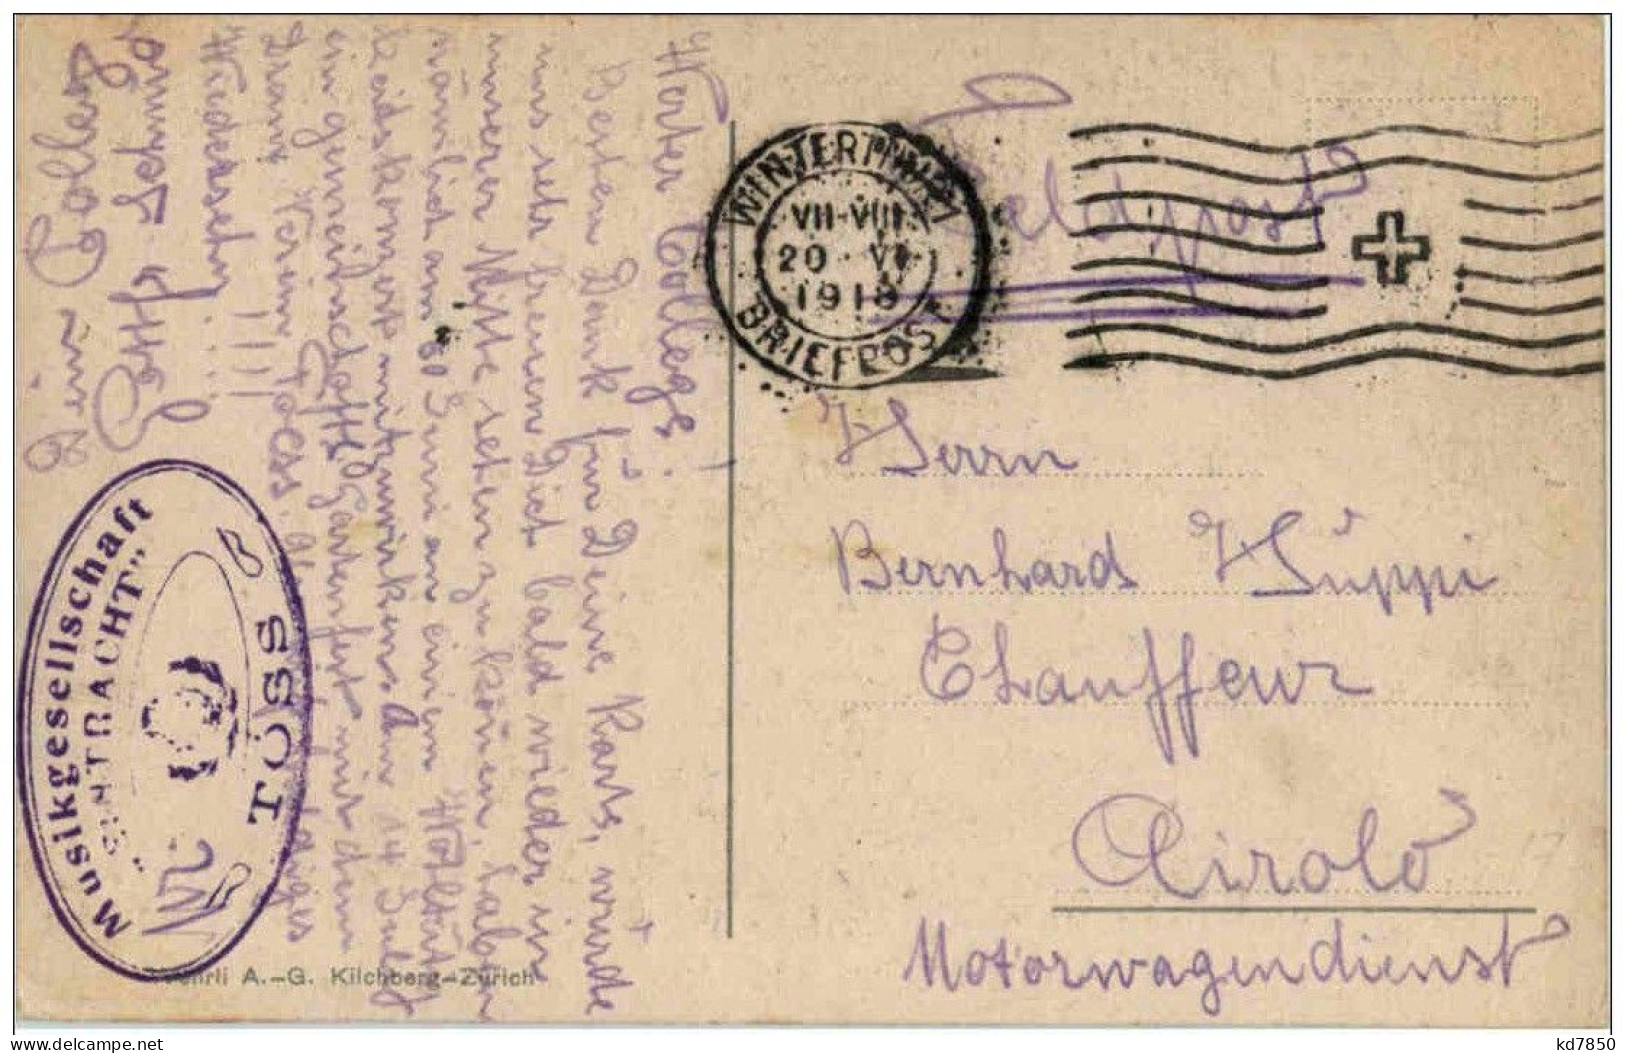 Werter Collega!
Besten Dank für Deine Karte, würde
uns sehr freuen Dich bald wieder in
unserer Mitte sehen zu können, haben
nämlich am 30 Juni an einem Wohltät
keitskonzert mitzuwirken & am 14 Juli
ein gemeinschaftl. Gartenfest mit dem
Dram. Verein Töss,
Wiedersehn!!!!
Dein Collega
Gottfr. Schmid
Musikgesellschaft
"EINTRACHT"
TÖSS
Wehrli A.-G. Kilchberg-Zürich
Feldpost
WINTERTHUR 1
VII-VIII
20 VI
1918
BRIEFPOST
Herrn
Bernhard Hüppi
Chauffeur
Airolo
Motorwagendienst
kd7850